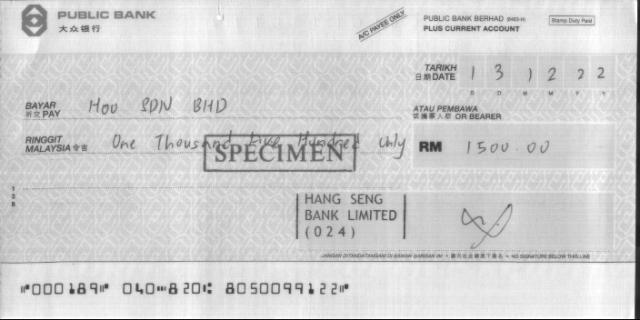 PUBLIC BANK
大众银行
A/C PAYEE ONLY
PUBLIC BANK BERHAD (6463-H)
PLUS CURRENT ACCOUNT
Stamp Duty Paid
TARIKH
日期 DATE 1 3 1 2 2 2
D D M M Y Y
BAYAR
祈交 PAY Hou SDN BHD
ATAU PEMBAWA
OR BEARER
RINGGIT
MALAYSIA 令吉 One Thousand Five Hundred Only
RM 1500.00
SPECIMEN
HANG SENG
BANK LIMITED
(024)
JANGAN DITANDATANGAN DI BAWAH GARISAN INI • NO SIGNATURE BELOW THIS LINE
⑈000189⑈ 040⑉820⑆ 8050099122⑈